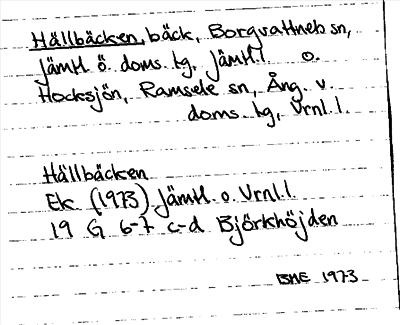 Hällbäcken, bäck, Borgvattnets sn,
Jämtl. ö. doms. tg, Jämtl. l. o.
Hocksjön, Ramsele sn, Ång. v.
doms. tg, Vrnl. l.
Hällbäcken
Ek (1973) Jämtl. o. Vrnl. l.
19 G 6-7 c-d Björkhöjden
BME 1973